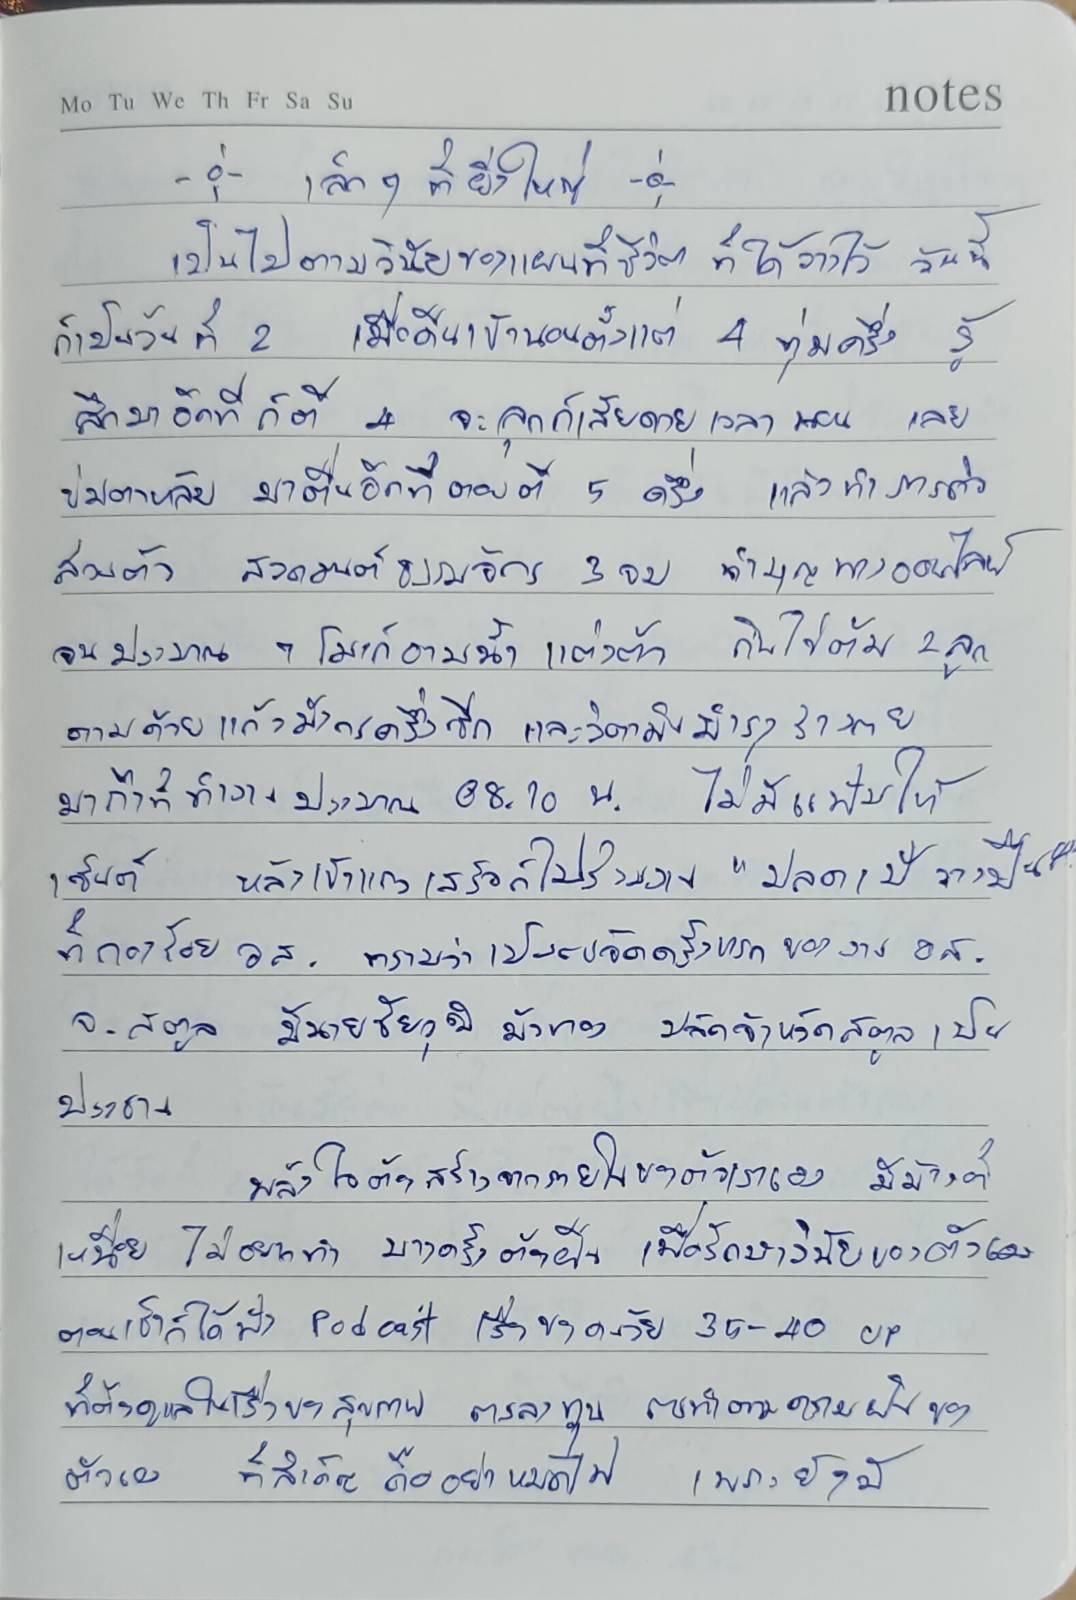 Mo Tu We Th Fr Sa Su notes
เล็กๆ ที่ยิ่งใหญ่
เป็นไปตามวินัยของแผนที่ชีวิต ที่ได้วางไว้ วันนี้
ก็เป็นวันที่ 2 เมื่อคืนเข้านอนตั้งแต่ 4 ทุ่มครึ่ง รู้
สึกมาอีกทีก็ตี 4 จะลุกก็เสียดายเวลานอน เลย
ข่มตาหลับ มาตื่นอีกทีตอนตี 5 ครึ่ง แล้วทำภารกิจ
ส่วนตัว สวดมนต์ธรรมจักร 3 จบ ทำบุญทางออนไลน์
จนประมาณ ๆ โมงก็อาบน้ำ แต่งตัว กินไข่ต้ม 2 ลูก
ตามด้วยแก้วมังกรครึ่งซีก และวิตามินบำรุงร่างกาย
มาถึงที่ทำงานประมาณ 08.10 น. ไม่มีแฟ้มให้
เซ็นต์ หลังเข้าแถวเสร็จก็ไปร่วมงาน "ปลดเป้ วางปืน"
ที่กองร้อย อส. ทราบว่าเป็นการจัดครั้งแรกของงาน อส.
จ.สตูล มีนายชัยวุฒิ บัวทอง ปลัดจังหวัดสตูล เป็น
ประธาน
พลังใจต้องสร้างจากภายในของตัวเราเอง มีบ้างที่
เหนื่อย ไม่อยากทำ บางครั้งต้องฝืน เพื่อรักษาวินัยของตัวเอง
ตอนเช้าก็ได้ฟัง Podcast เรื่องของคนวัย 35-40 up
ที่ต้องดูแลในเรื่องของสุขภาพ การลงทุน การทำตามความฝันของ
ตัวเอง ที่สำคัญ คืออย่าหมดไฟ เพราะยังมี